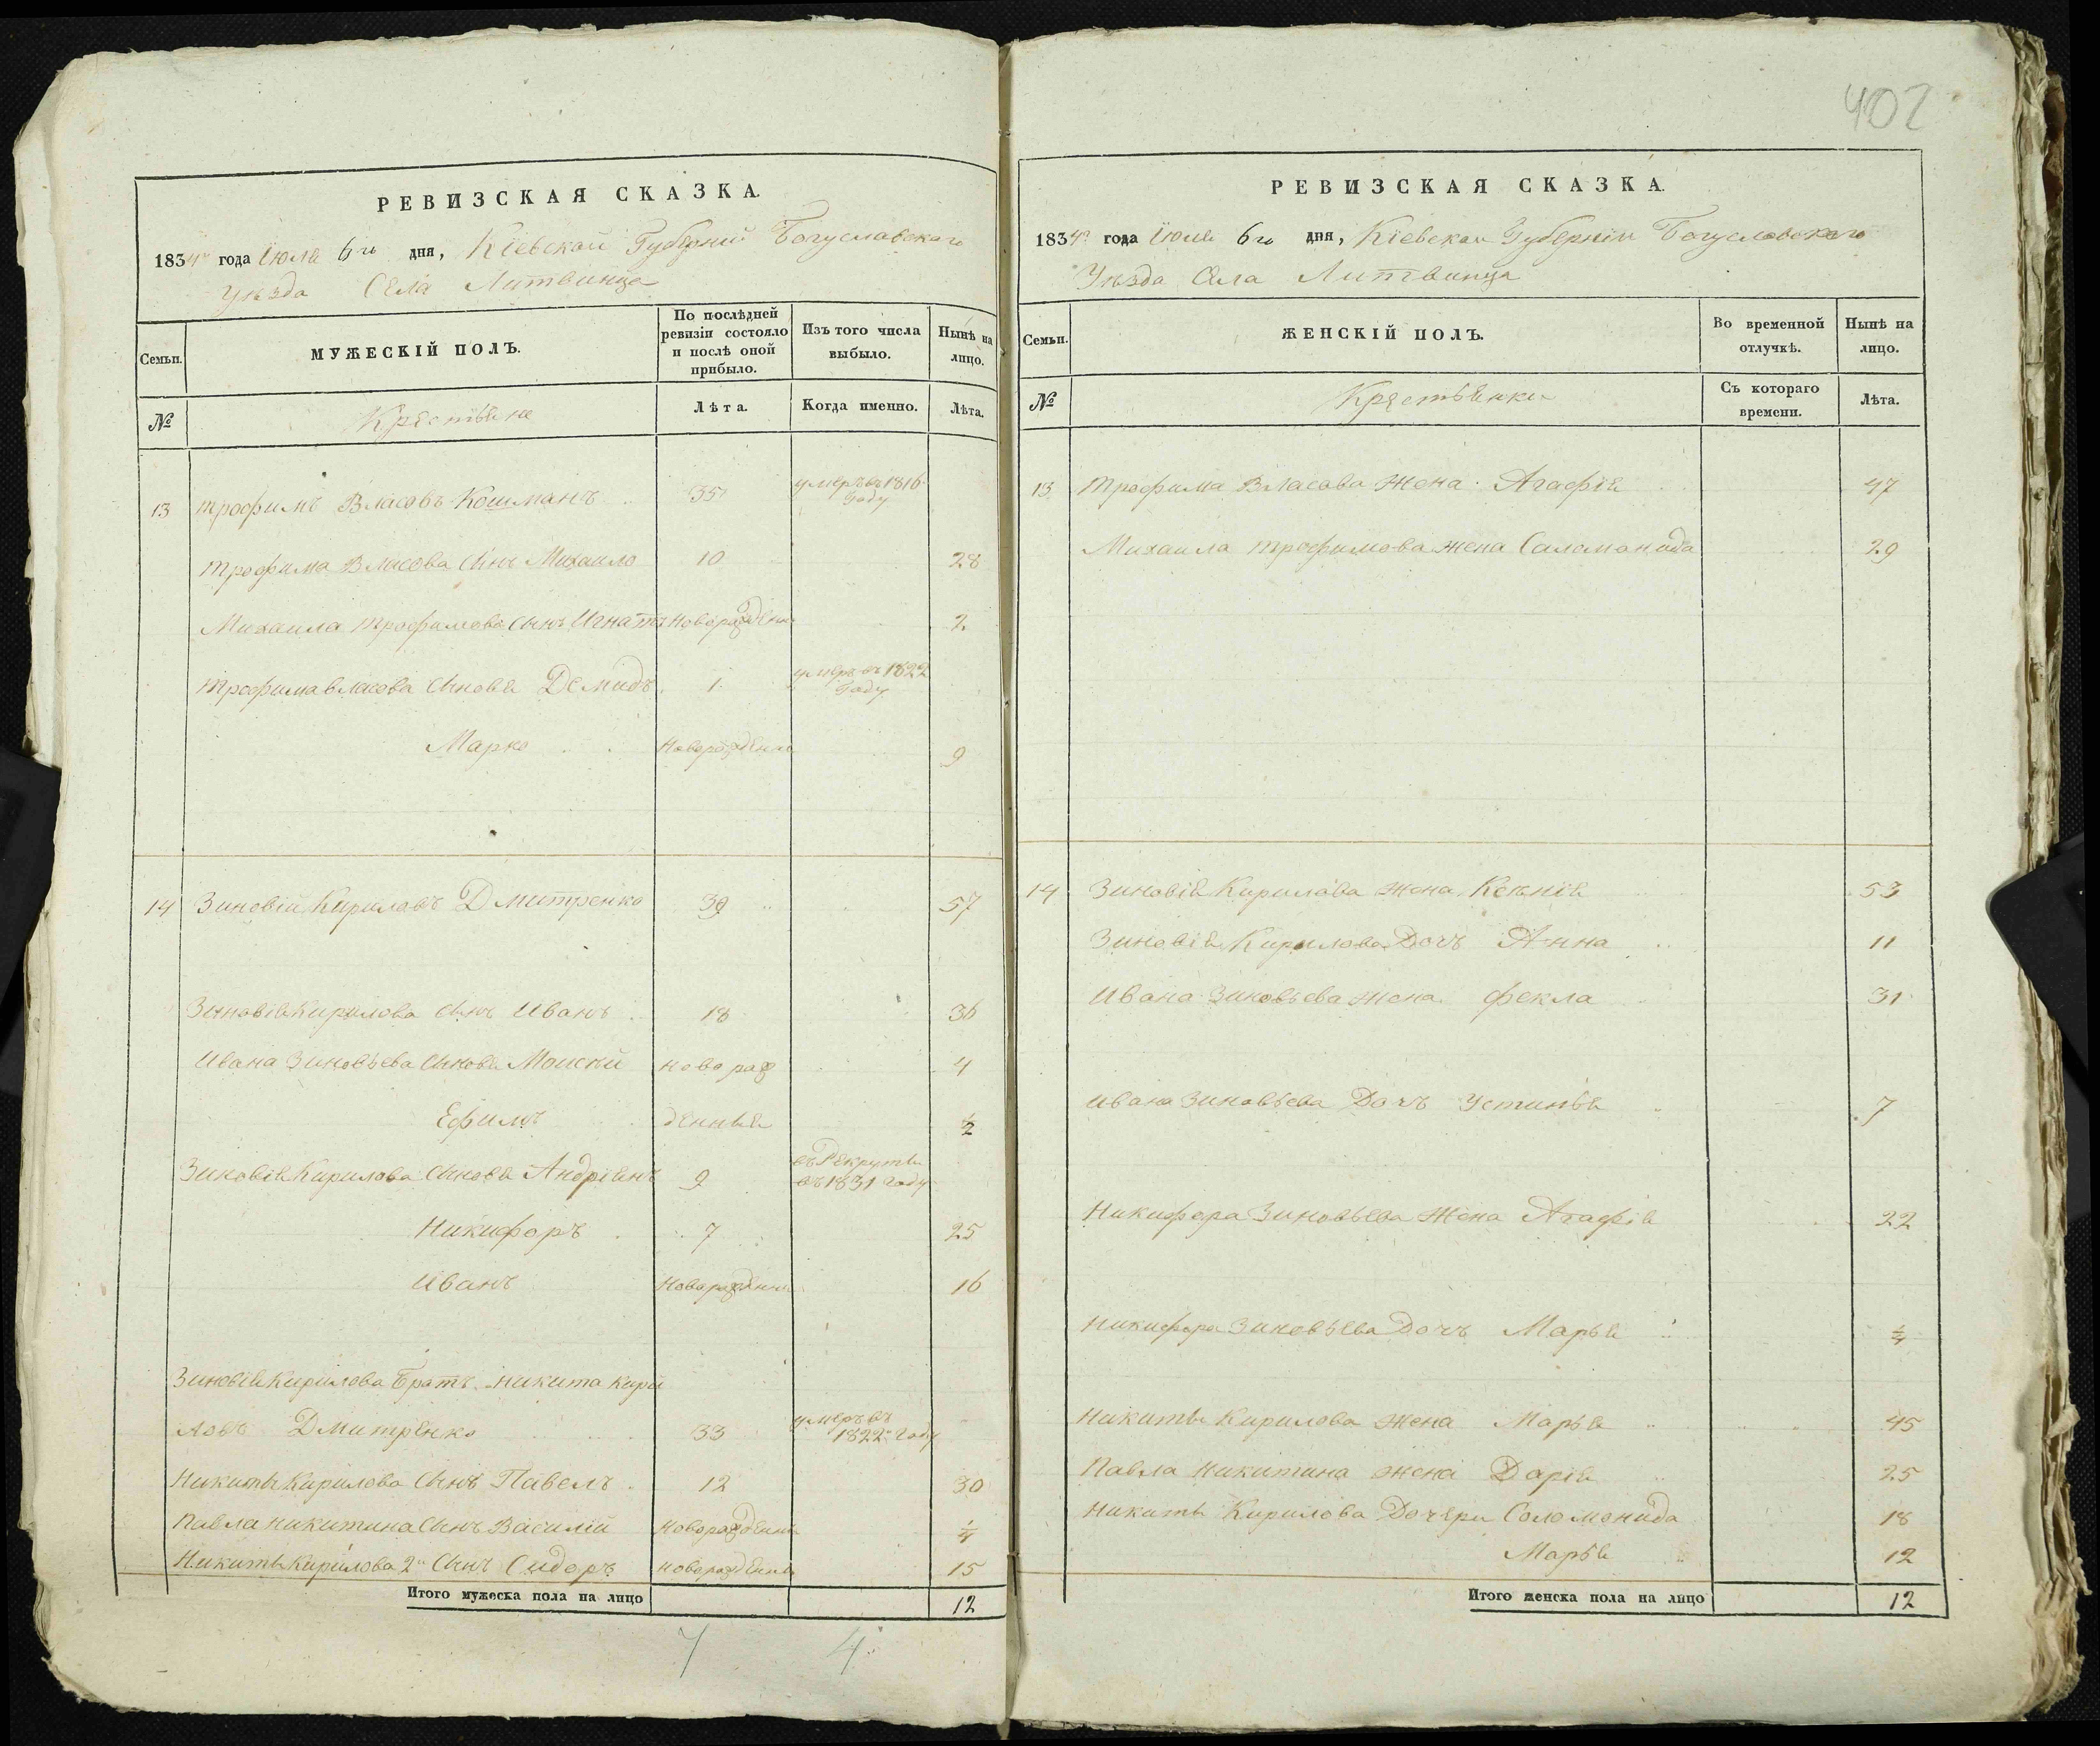 402
РЕВИЗСКАЯ СКАЗКА.
1834го года Іюля 6го дня, Кіевской Губерніи Богуславского
Уѣзда Села Литвинца
Семьи. МУЖЕСКІЙ ПОЛЪ. По послѣдней ревизіи состояло и послѣ оной прибыло. Изъ того числа выбыло. Нынѣ на лицо.
№ Крестьяне Лѣта. Когда именно. Лѣта.
13 Трофимъ Власовъ Кошманъ 35 умеръ въ 1816 Году
Трофима Власова Сынъ Михаило 10 28
Михаила Трофимова Сынъ Игнатъ Новорожденъ 2
Трофима Власова Сыновя Демидъ 1 умеръ въ 1822 Году
Марко Новорожденъ 9
14 Зиновій Кириловъ Дмитренко 39 57
Зиновія Кирилова Сынъ Иванъ 18 36
Ивана Зиновьева Сыновя Моисѣй новорож 4
Ефимъ денныя ½
Зиновія Кирилова Сыновя Андріянъ 9 въ Рекруты въ 1831 Году
Никифоръ 7 25
Иванъ Новорожденъ 16
Зиновія Кирилова Братъ Никита Кири
ловъ Дмитренко 33 умеръ въ 1822 Году
Никиты Кирилова Сынъ Павелъ 12 30
Павла Никитина Сынъ Василій Новорожденъ ¼
Никиты Кирилова 2й Сынъ Сидоръ новорожденъ 15
Итого мужеска пола на лицо 12
7 4
РЕВИЗСКАЯ СКАЗКА.
1834го года Іюля 6го дня, Кіевской Губерніи Богуславского
Уѣзда Села Литвинца
Семьи. ЖЕНСКІЙ ПОЛЪ. Во временной отлучкѣ. Нынѣ на лицо.
№ Крестьянки Съ котораго времени. Лѣта.
13 Трофима Власова жена Агафія 47
Михаила Трофимова жена Саломанида 29
14 Зиновія Кирилова жена Ксѣнія 53
Зиновія Кирилова Дочь Анна 11
Ивана Зиновьева жена Фекла 31
Ивана Зиновьева Дочь Устинья 7
Никифора Зиновьева жена Агафія 22
Никифора Зиновьева Дочь Марья ¼
Никиты Кирилова жена Марья 45
Павла Никитина жена Дарія 25
Никиты Кирилова Дочери Соломонида 18
Марья 12
Итого женска пола на лицо 12